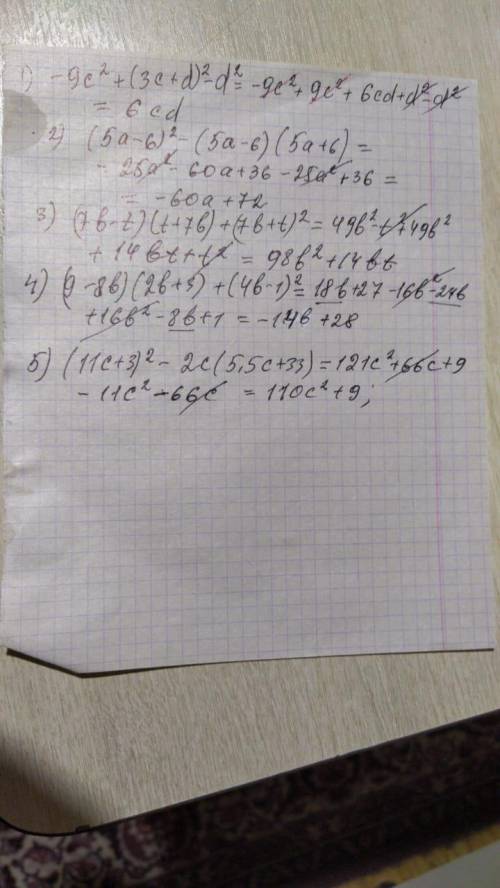 1) -9c² + (3c+d)² - d² = -9c² + 9c² + 6cd + d² - d²
= 6cd
2) (5a-6)² - (5a-6)(5a+6) =
= 25a² - 60a + 36 - 25a² + 36 =
= -60a + 72
3) (7b-t)(t+7b) + (7b+t)² = 49b² - t² + 49b²
+ 14bt + t² = 98b² + 14bt
4) (9-8b)(2b+3) + (4b-1)² = 18b + 27 - 16b² - 24b
+ 16b² - 8b + 1 = -14b + 28
5) (11c+3)² - 2c(5,5c+33) = 121c² + 66c + 9
- 11c² - 66c = 110c² + 9;